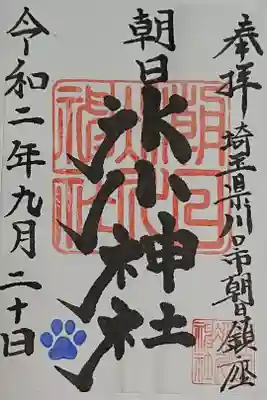 奉拝 埼玉県川口市朝日鎮座
朝日氷川神社
令和二年九月二十日